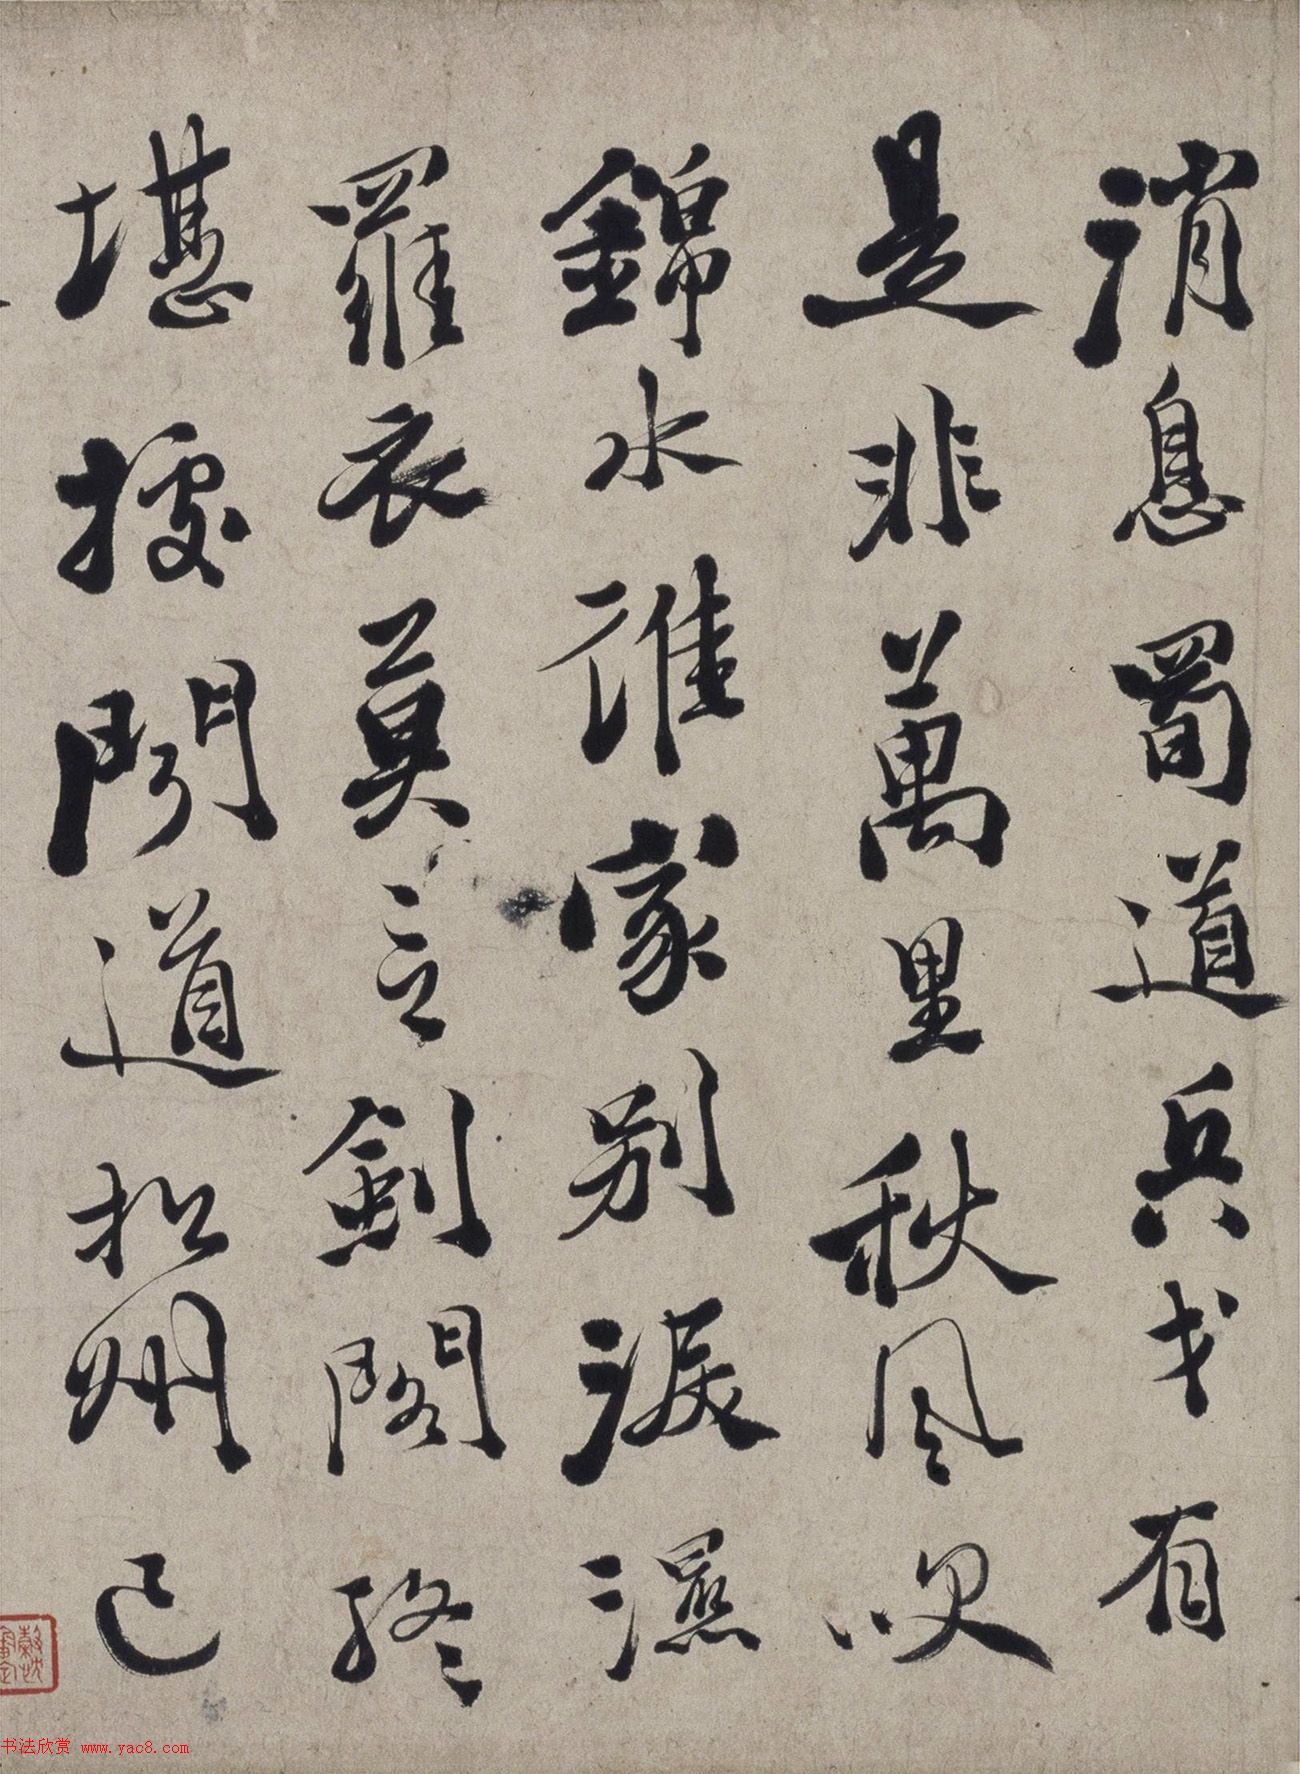 消息蜀道兵戈有
是非萬里秋風吹
錦水誰家別淚濕
羅衣莫言劍閣終
堪據聞道松州已
书法欣赏 www.yac8.com